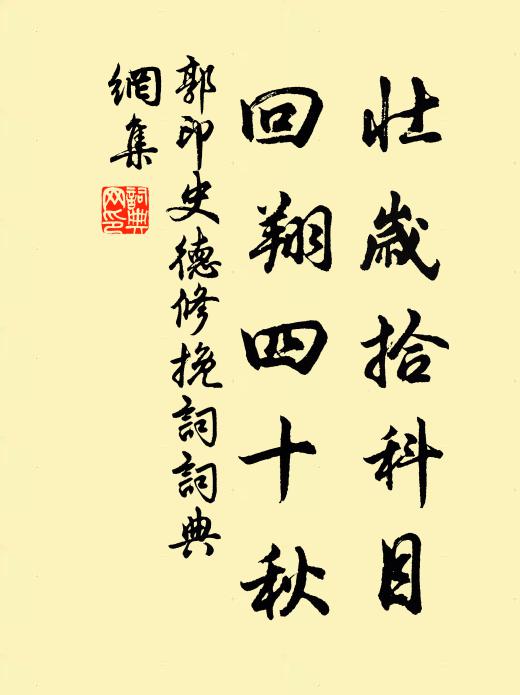 壮歲拾科目
回翔四十秋
郭印史德修挽詞詞典
網集
詞典網印